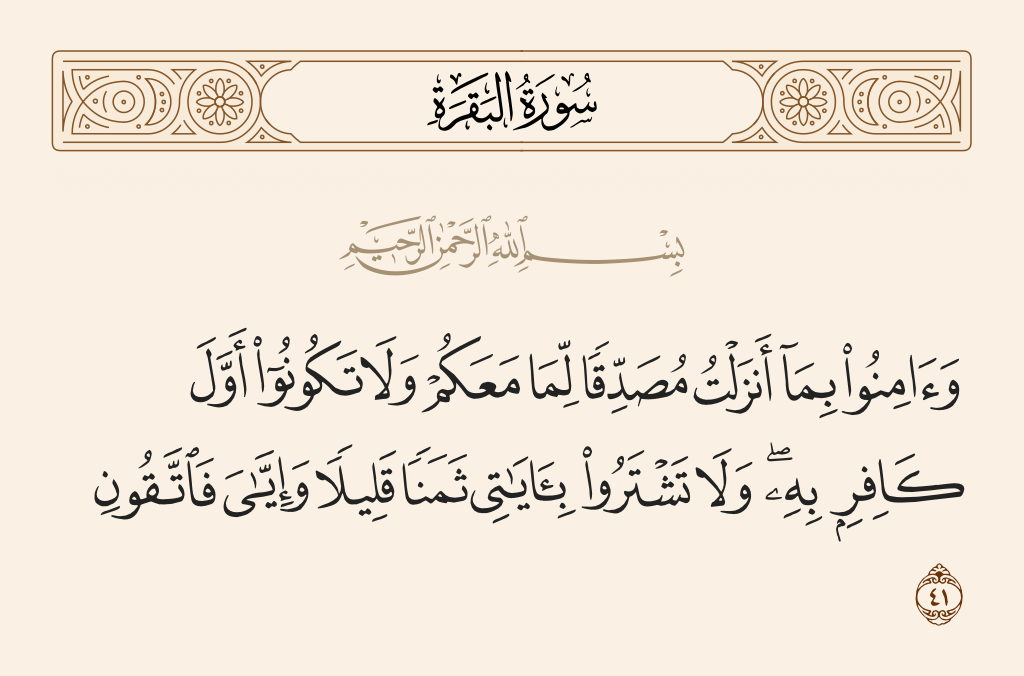 سُورَةُ البَقَرَةِ
بِسْمِ ٱللَّهِ ٱلرَّحْمَٰنِ ٱلرَّحِيمِ
وَءَامِنُوا۟ بِمَآ أَنزَلْتُ مُصَدِّقًا لِّمَا مَعَكُمْ وَلَا تَكُونُوٓا۟ أَوَّلَ
كَافِرٍۭ بِهِۦ ۖ وَلَا تَشْتَرُوا۟ بِـَٔايَـٰتِى ثَمَنًا قَلِيلًا وَإِيَّـٰىَ فَٱتَّقُونِ
٤١